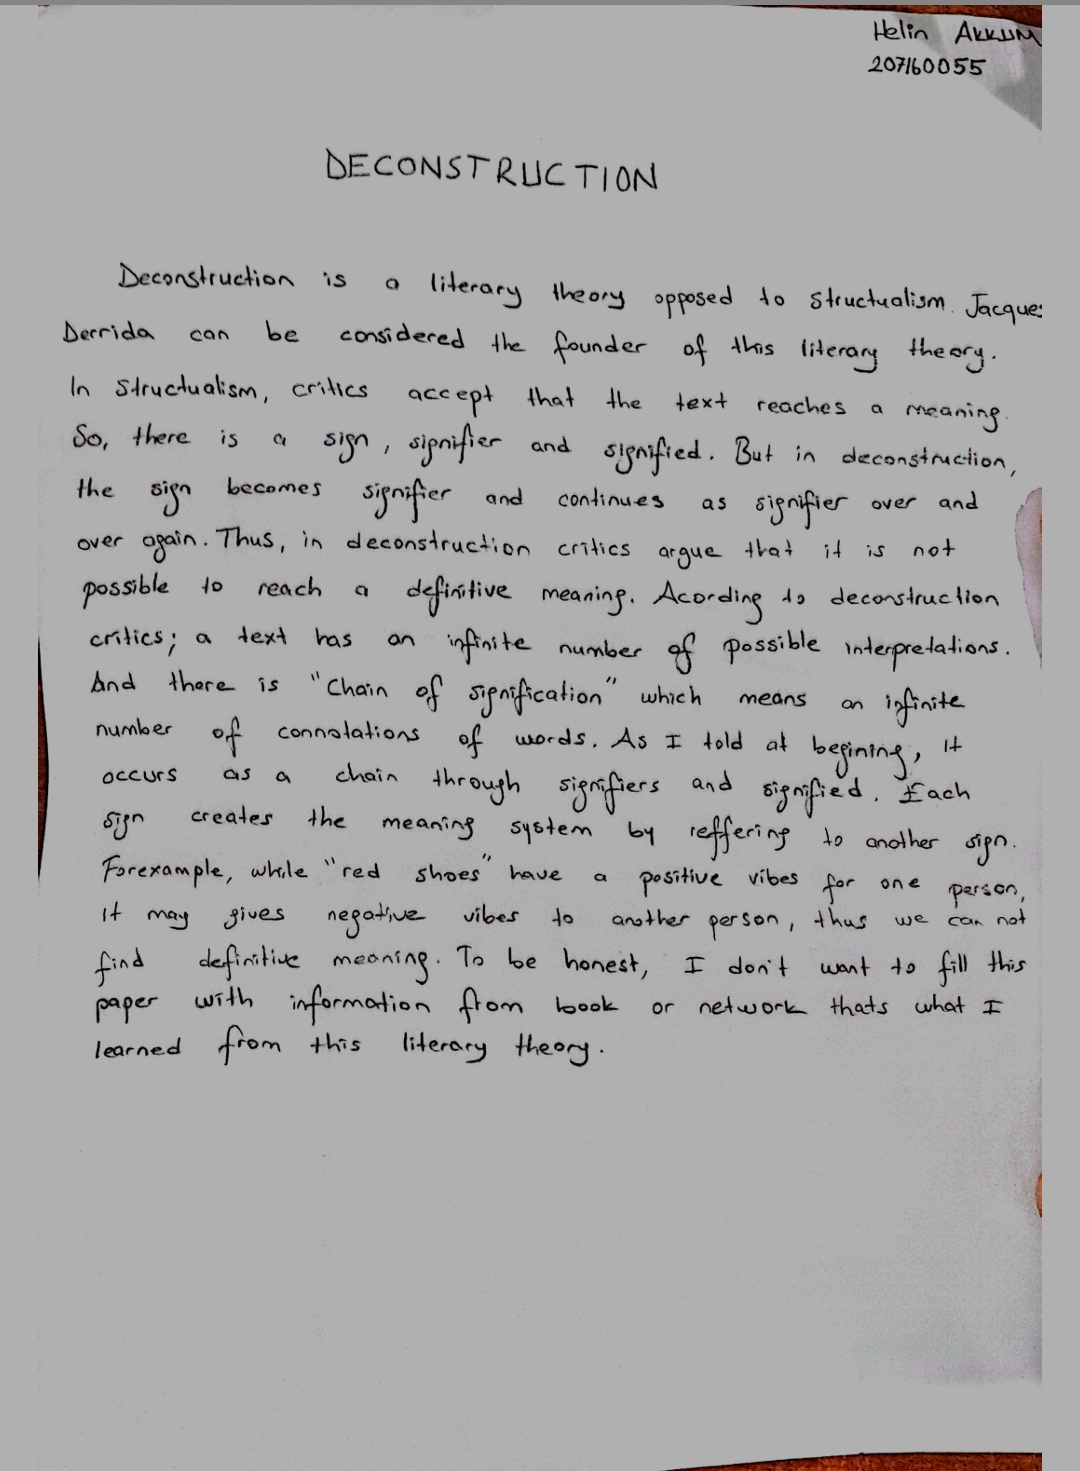 Helin AKKUM
207160055
DECONSTRUCTION
Deconstruction is a literary theory opposed to structualism. Jacques
Derrida can be considered the founder of this literary theory.
In structualism, critics accept that the text reaches a meaning.
So, there is a sign, signifier and signified. But in deconstruction,
the sign becomes signifier and continues as signifier over and
over again. Thus, in deconstruction critics argue that it is not
possible to reach a definitive meaning. Acording to deconstruction
critics; a text has an infinite number of possible interpretations.
And there is "Chain of signification" which means an infinite
number of connotations of words. As I told at begining, it
occurs as a chain through signifiers and signified. Each
sign creates the meaning system by reffering to another sign.
Forexample, while "red shoes" have a positive vibes for one person,
it may gives negative vibes to another person, thus we can not
find definitive meaning. To be honest, I don't want to fill this
paper with information from book or network thats what I
learned from this literary theory.